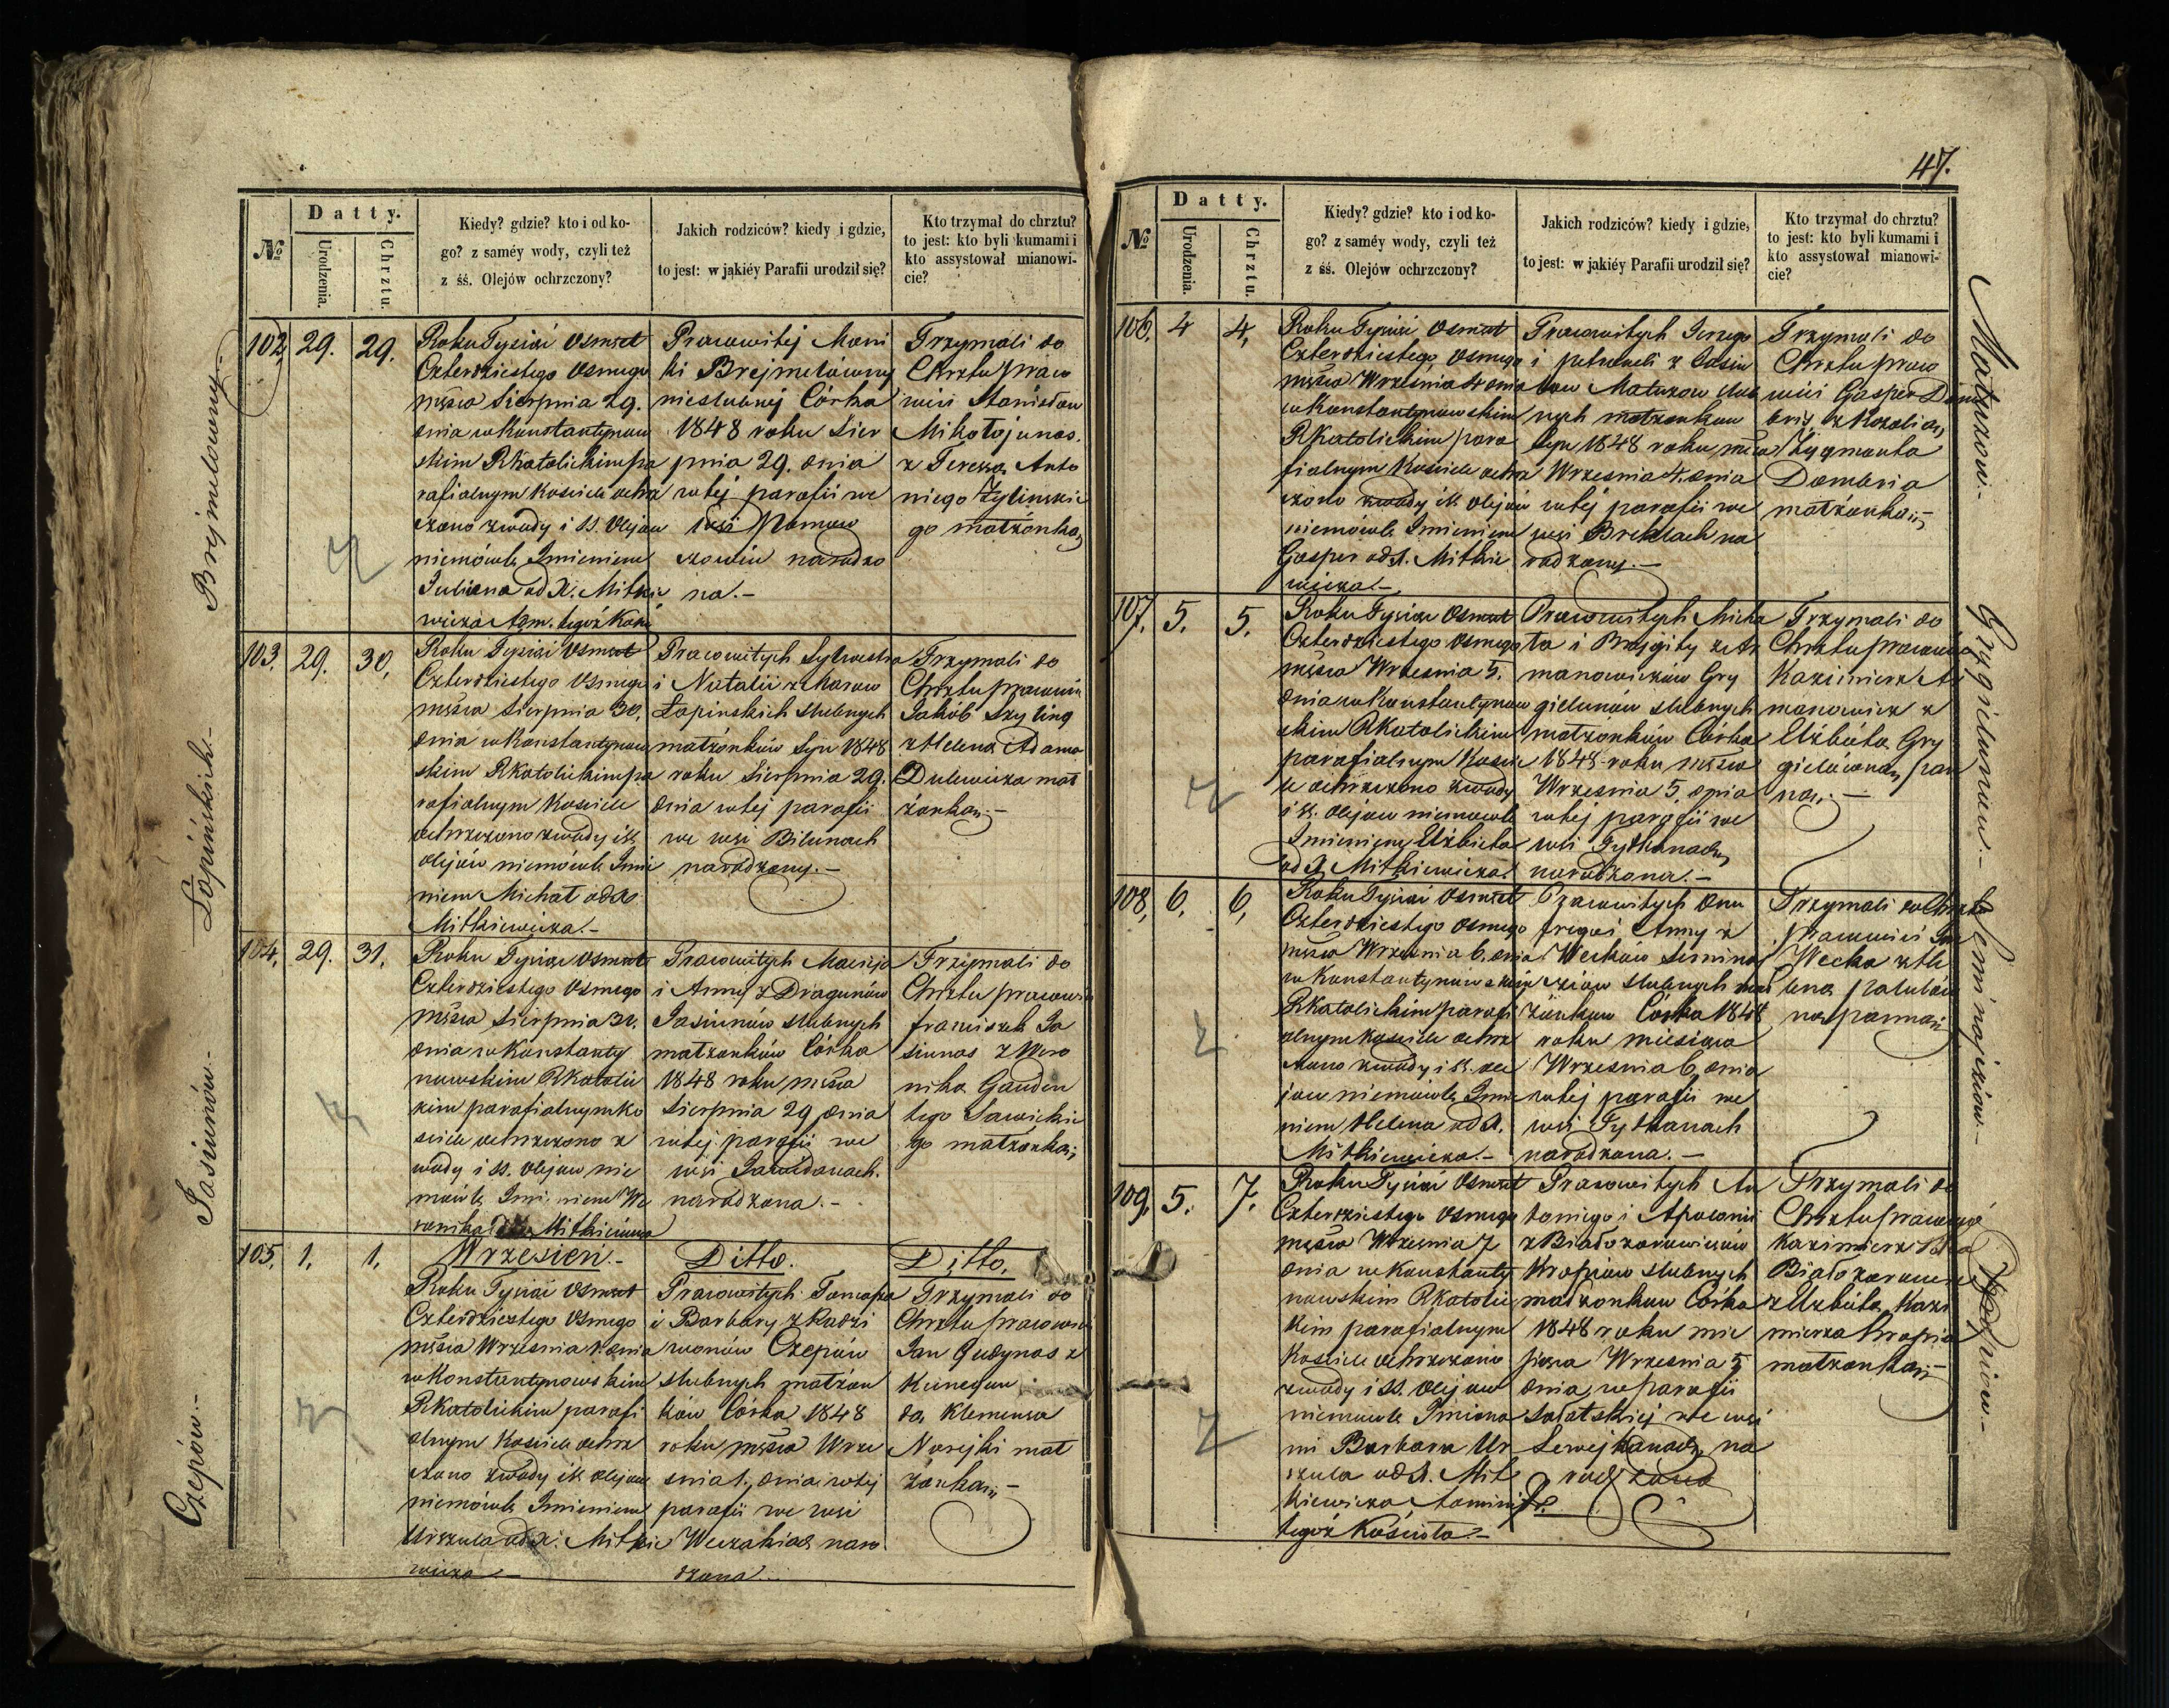 47.
Datty.
№
Urodzenia.
Chrztu.
Kiedy? gdzie? kto i od ko-
go? z saméy wody, czyli też
z śś. Olejów ochrzczony?
Jakich rodziców? kiedy i gdzie,
to jest: w jakiéy Parafii urodził się?
Kto trzymał do chrztu?
to jest: kto byli kumami i
kto assystował mianowi-
cie?
Brejmelowny.-
102. 29. 29.
Roku Tysiąc Osmset
Czterdziestego Osmego
mśca Sierpnia 29.
dnia w Konstantynow
skim RKatolickim pa
rafialnym Kosciele ochrz
czono zwody i SS. Olejow
niemówle Imieniem
Juliana od X. Mitkie
wicza Adm. tegoż Kości
Pracowitej Mary
ki Brejmelówny
nieslubnej Córka
1848 roku Sier
pnia 29. dnia
w tej parafii we
wsi
narodzo
na.-
Trzymali do
Chrztu praco
wici Stanisław
Mikołajunas.
z Teressą Anto
niego Żylinskie
go małżonką
Łapińskich.-
103. 29. 30.
Roku Tysiąc Osmset
Czterdziestego Osmego
mśca Sierpnia 30.
dnia w Konstantynow
skim RKatolickim pa
rafialnym Kosciele
ochrzczono zwody i SS.
olejów niemówle Imie
niem Michał od X.
Mitkiewicza.-
Pracowitych Sylwestra
i Natalii
Łapinskich slubnych
małżonków Syn 1848
roku Sierpnia 29.
dnia w tej parafii
we wsi Bilunach
narodzony.-
Trzymali do
Chrztu pracowici
Jakób Szyling
z Heleną Adama
Dulewicza mał
żonką.-
Jasiunów.-
104. 29. 31.
Roku Tysiąc Osmset
Czterdziestego Osmego
mśca Sierpnia 31.
dnia w Konstanty
nowskim RKatolic
kim parafialnym Ko
sciele ochrzczono z
wody i SS. olejow nie
mówle Imieniem We
ronika od X. Mitkiewicza
Pracowitych Macieja
i Anny z Dragunów
Jasiunów slubnych
małżonków Córka
1848 roku mśca
Sierpnia 29 dnia
w tej parafii we
wsi Jawidanach.
narodzona.-
Trzymali do
Chrztu pracowici
Franciszek Ja
siunas z Wero
niką Gauden
tego Sawickie
go małżonką;
Czepów.-
105. 1. 1.
Wrzesień.-
Roku Tysiąc Osmset
Czterdziestego Osmego
mśca Wrzesnia 1. dnia
w Konstantynowskim
RKatolickim parafi
alnym Kosciele ochrz
czono zwody i SS. olejow
niemówle Imieniem
Urszula od X. Mitkie
wicza.-
Ditto.
Pracowitych Tomasza
i Barbary z Radzi
wonów Czepów
slubnych małżon
ków Córka 1848
roku mśca Wrze
snia 1. dnia w tej
parafii we wsi
naro
dzona.-
Ditto.
Trzymali do
Chrztu pracowici
Jan Gudynas z
Kunegun
dą Klemensa
Narejki mał
żonką.-
Datty.
№
Urodzenia.
Chrztu.
Kiedy? gdzie? kto i od ko-
go? z saméy wody, czyli też
z śś. Olejów ochrzczony?
Jakich rodziców? kiedy i gdzie,
to jest: w jakiéy Parafii urodził się?
Kto trzymał do chrztu?
to jest: kto byli kumami i
kto assystował mianowi-
cie?
Matuzow.-
106. 4 4.
Roku Tysiąc Osmset
Czterdziestego Osmego
mśca Wrzesnia 4 dnia
w Konstantynowskim
RKatolickim para
fialnym Kosciele ochrz
czono zwody i SS. olejow
niemówle Imieniem
Gasper od X. Mitkie
wicza.-
Pracowitych Jerzego
i Petroneli z Jasiu
now Matuzow slub
nych małżonkow
Syn 1848 roku mśca
Wrzesnia 4. dnia
w tej parafii we
wsi Breklach na
rodzony.-
Trzymali do
Chrztu praco
wici Gasper Dom
bris z Rozalią
Zygmonta
Dombria
małżonką.-
Grygielunow.-
107. 5. 5.
Roku Tysiąc Osmset
Czterdziestego Osmego
mśca Wrzesnia 5.
dnia w Konstantynow
skim RKatolickim
parafialnym Kosci
le ochrzczono zwody
i SS. olejow niemowle
Imieniem Elżbieta
od X. Mitkiewicza
Pracowitych Micha
ła i Brygity z Ar
manowiczów Gry
gielunów slubnych
małżonków Córka
1848 roku mśca
Wrzesnia 5. dnia
w tej parafii we
wsi Tytkanach
narodzona.-
Trzymali do
Chrztu pracowici
Kazimierz Ar
manowicz z
Elżbietą Gry
gielówną pan
ną.-
Seminajciow.-
108. 6. 6.
Roku Tysiąc Osmset
Czterdziestego Osmego
mśca Wrzesnia 6. dnia
w Konstantynowskim
RKatolickim parafi
alnym Kosciele ochrz
czono zwody i SS. ole
jow niemówle Imie
niem Helena od X.
Mitkiewicza.-
Pracowitych Onu
frego i Anny z
Weckow Seminaj
ciów slubnych mał
żonkow Córka 1848
roku miesiąca
Wrzesnia 6 dnia
w tej parafii we
wsi Tytkanach
narodzona.-
Trzymali do Chrztu
pracowici Jan
Wecka z He
leną
panną.
109. 5. 7.
Roku Tysiąc Osmset
Czterdziestego Osmego
mśca Wrzesnia 7
dnia w Konstanty
nowskim RKatolic
kim parafialnym
Kosciele ochrzczono
zwody i SS. olejow
niemowle Imiona
mi Barbara Ur
szula od X. Mit
kiewicza Administr.
tegoż Kościoła.-
Pracowitych An
toniego i Apolonii
z Białozorowiczów
Kropiow slubnych
małżonkow Córka
1848 roku mie
siąca Wrzesnia 5
dnia, w parafii
Sałatskiej we wsi
na
rodzona
Trzymali do
Chrztu pracowici
Kazimierz
z Elżbietą Kazi
mierza Kropia
małżonką.-